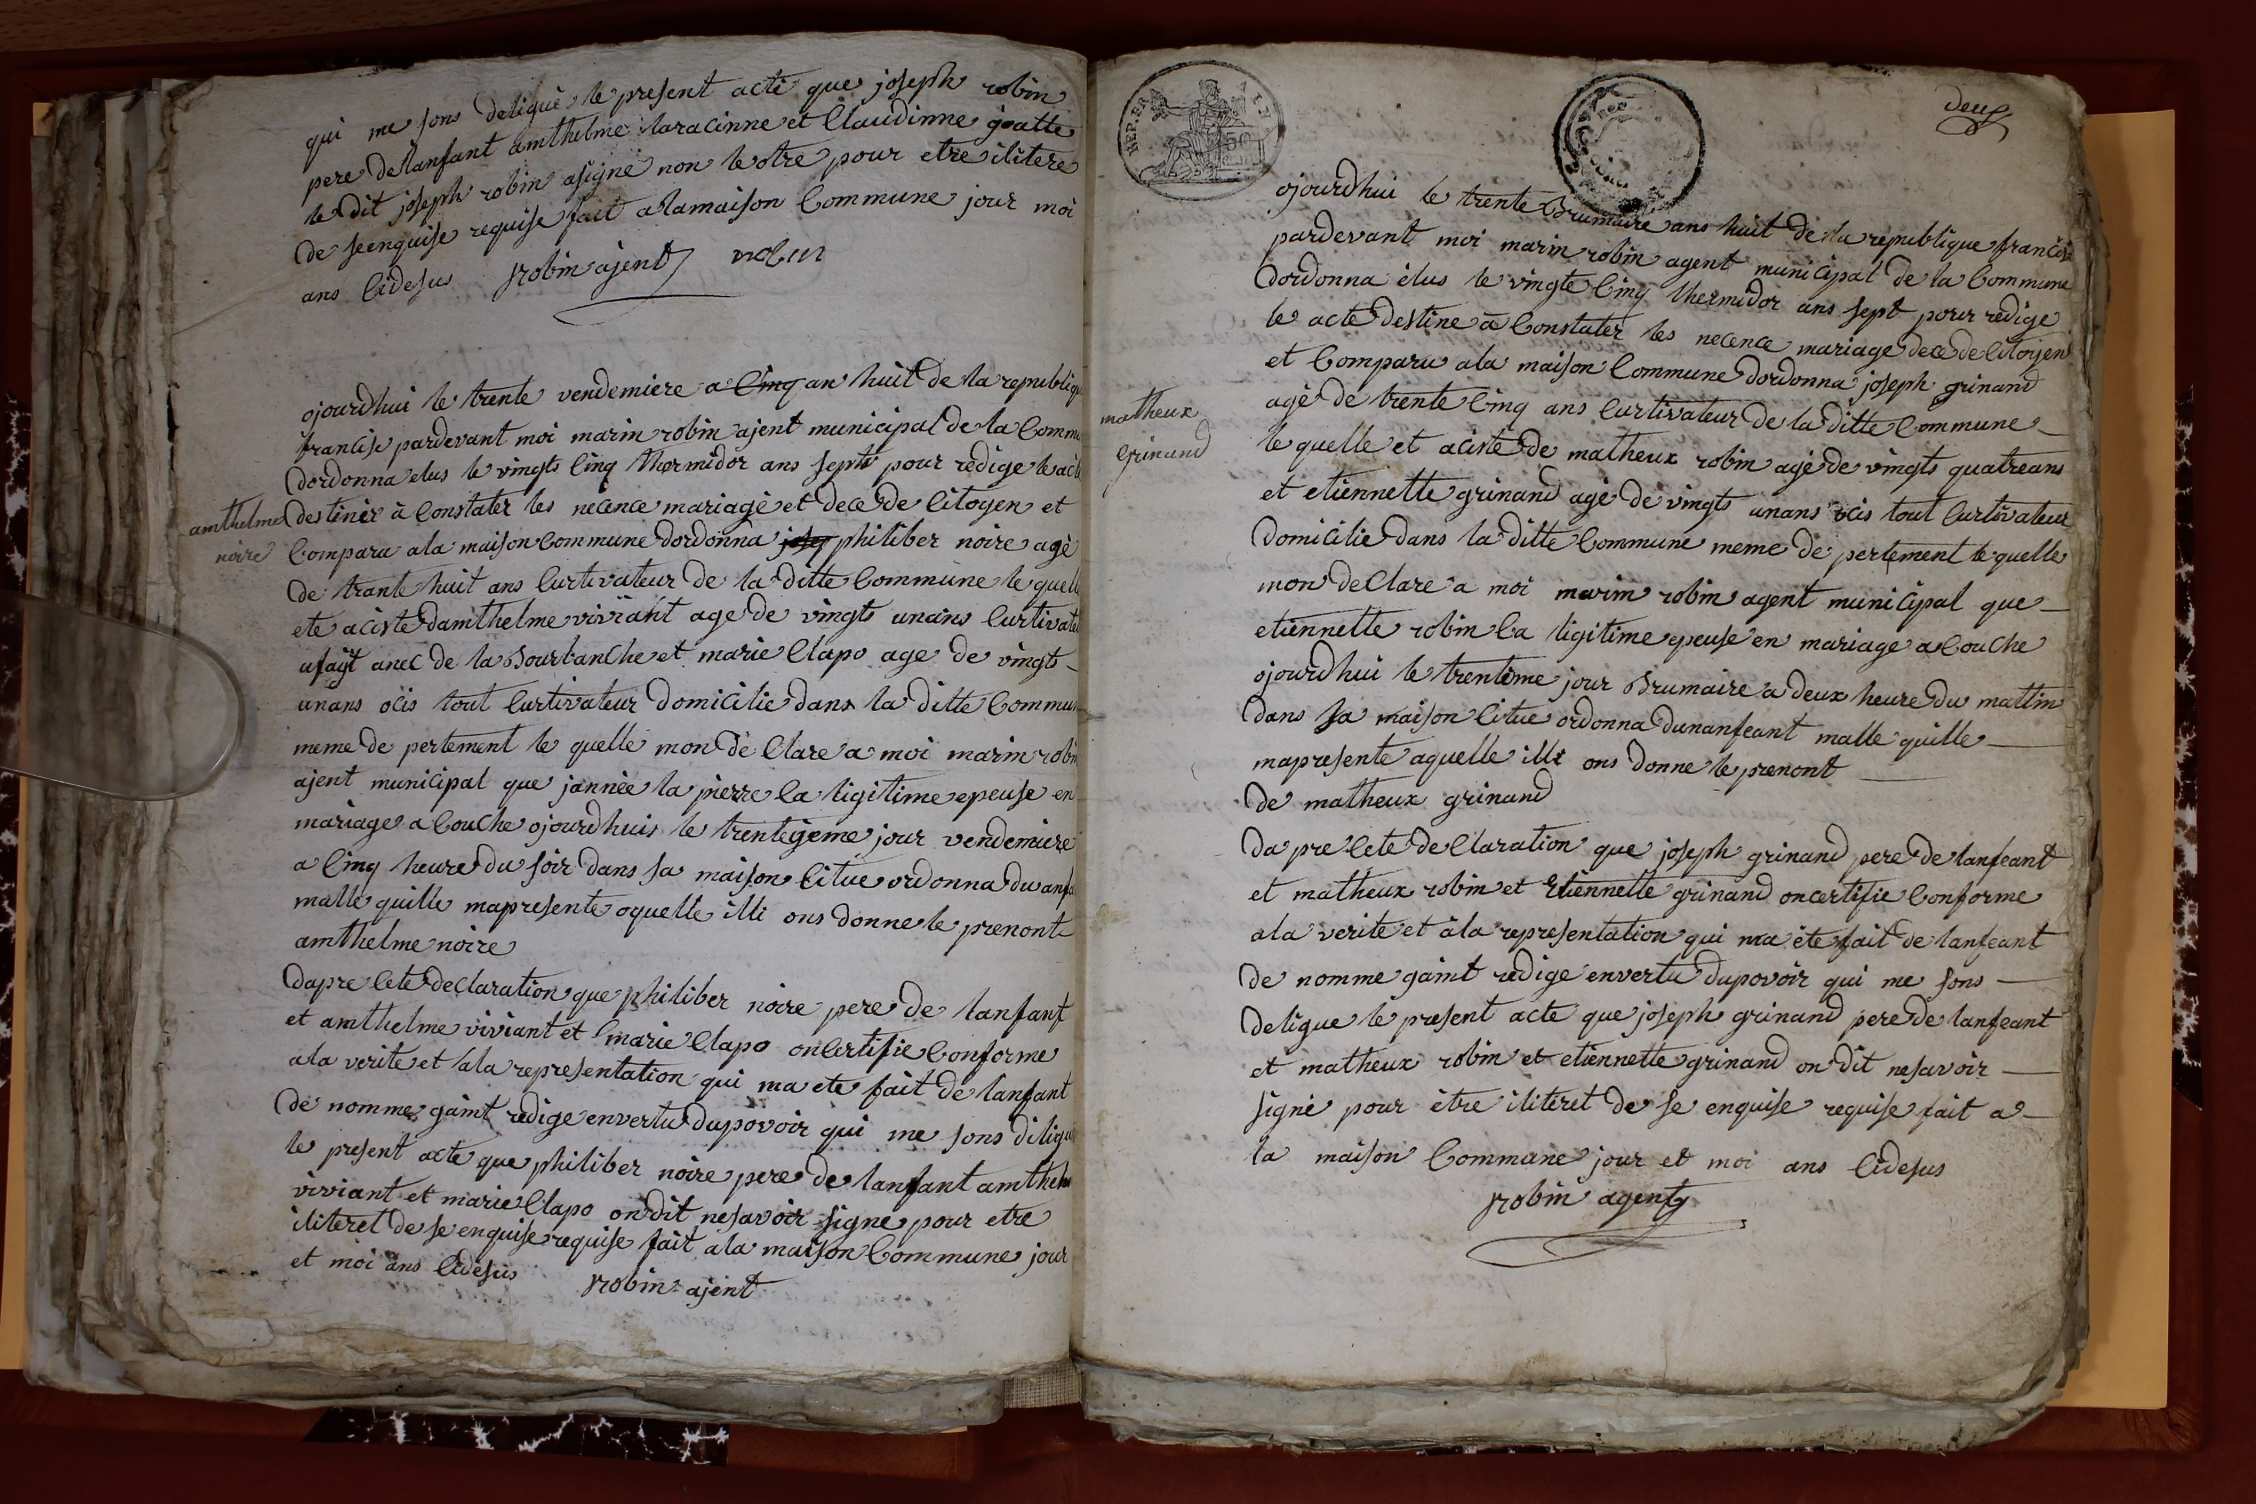 qui me sons deligué le present acte que joseph robin
pere de lanfant amthelme laracinne et Claudinne goatte
le dit joseph robin a signé non le otre pour etre ilitere
de se enquise requise fait a la maison Commune jour moi
ans Cidesus robin ajent robin
ojourdhui le trente vendemiere a Cinq an huit de la republiq
francise pardevant moi marin robin ajent municipal de la Comm
dordonna elus le vingts Cinq thermidor ans septs pour redige le acte
destiner à Constater les necence mariagé et dece de Citoyen et
Comparu a la maison Commune dordonna josep philiber noire agé
de trante huit ans Curtivateur de la ditte Commune le quelle
ete aciste damthelme viviant age de vingts unans Curtivate
afaÿt avec de la Dourbanche et marie Clapo age de vingts
unans ocis tout Curtivateur domicilie dans la ditte Commun
meme de pertement le quelle mon dé Clare a moi marin robin
ajent municipal que jannée la pierre Ca ligitime epeuse en
mariage a Couche ojourdhuis le trentegeme jour vendemiere
a Cinq heure du soir dans sa maison Citue ordonna du anfa
malle quille mapresente aquelle illi ons donne le prenont
amthelme noire
amthelme
noire
dapre Cete declaration que philiber noire pere de lanfant
et amthelme viviant et marie Clapo on Certifie Conforme
a la verite et a la representation qui ma ete fait de lanfant
de nomme gaint redige envertu dupovoir qui me sons deligu
le present acte que philiber noire pere de lanfant amthelm
viviant et marie Clapo on dit nesavoir signe pour etre
iliteret de se enquise requise fait a la maison Commune jour
et moi ans Cidesus robin ajent
deux
REP. FRA
50
ojourdhui le trente Brumaire ans huit de la republique francise
pardevant moi marin robin agent municipal de la Commune
dordonna élus le vingte Cinq thermidor ans sept pour redige
le acte destine à Constater les necence mariage dece de Citoyen
et Comparu a la maison Commune dordonna joseph grinand
agé de trente Cinq ans Curtivateur de la ditte Commune
le quelle et aciste de matheux robin agé de vingts quatre ans
et etiennette grinand agé de vingts unans ocis tout Curtivateur
domicilie dans la ditte Commune meme de pertement le quelle
mon de Clare a moi marin robin agent municipal que
etiennette robin Ca ligitime epeuse en mariage a Couche
ojourdhui le trenteme jour Brumaire a deux heure du mattin
dans sa maison Citue ordonna dunanfeant malle quille
mapresente aquelle illi ons donne le prenont
de matheux grinand
matheux
Grinand
da pre Cete de Claration que joseph grinand pere de lanfeant
et matheux robin et Etiennette grinand on certifie Conforme
a la verite et à la representation qui ma éte fait de lanfeant
de nomme gaint redige envertu dupovoir qui me sons
deligue le present acte que joseph grinand pere de lanfeant
et matheux robin et etiennette grinand on dit nesavoir
signé pour étre iliteret de se enquise requise fait a
la maison Commune jour et moi ans Cidesus
robin agent